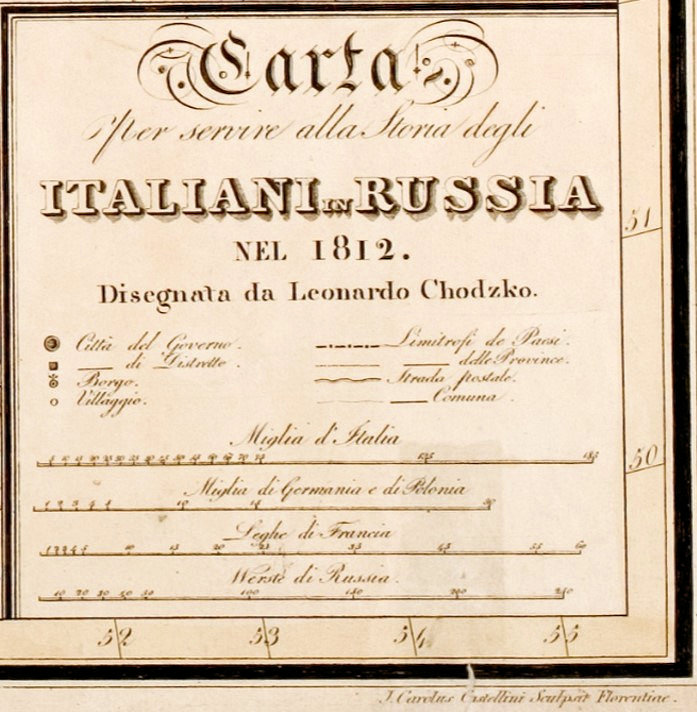 Carta
Per servire alla Storia degli
ITALIANI IN RUSSIA
NEL 1812.
Disegnata da Leonardo Chodzko.
Città del Governo.
di Distretto.
Borgo.
Villaggio.
Limitrofi de Paesi.
delle Provincie.
Strada postale.
Comuna.
Miglia d'Italia
125 185
Miglia di Germania e di Polonia
Leghe di Francia
Werste di Russia.
100 150 200 250
51
50
52 53 54 55
J. Carolus Castellini Sculpsit Florentiae.